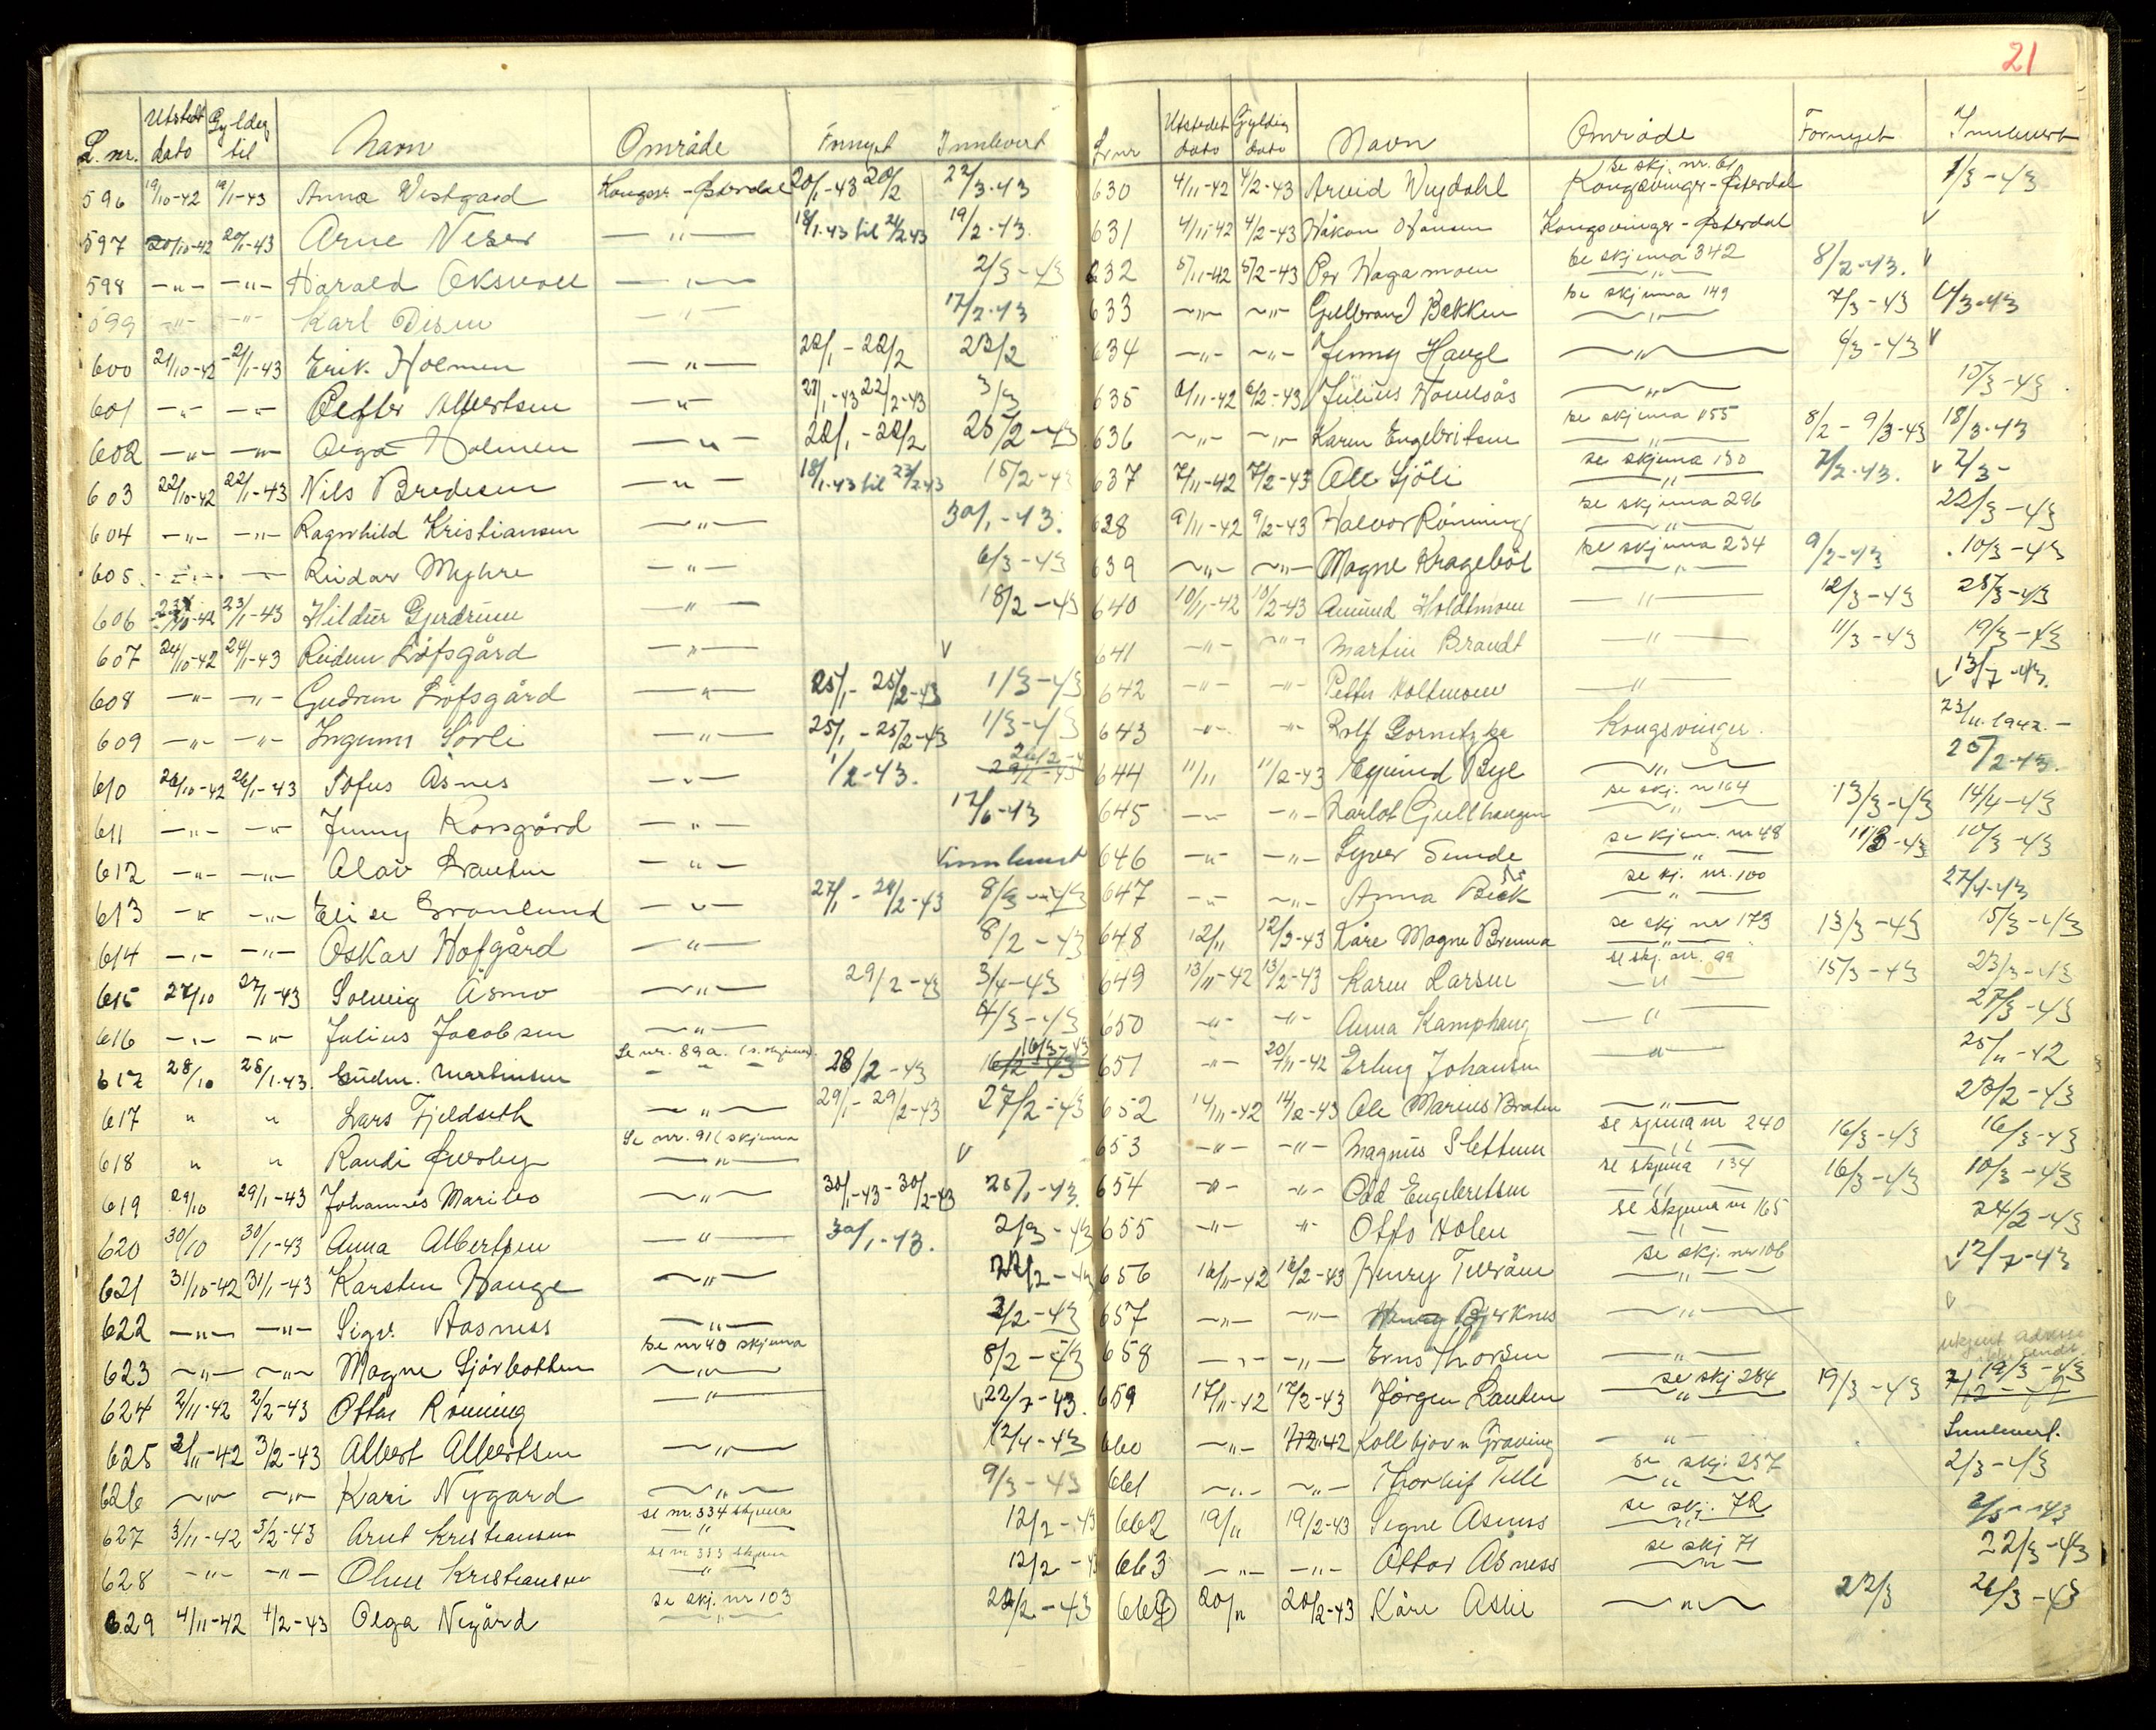 21
L. nr. Utstedt dato Gyldig til Navn Område Fornyet Innlevert
596 19/10-42 19/1-43 Anna Vestgard Kongsv - Østerdal 20/1-43 20/2 22/3-43
597 20/10-42 20/1-43 Arne Neser —"— 18/1-43 til 21/2 43 19/2-43.
598 —"— —"— Harald Oksvoll —"— 2/3-43
599 —"— —"— Karl Disen —"— 17/2-43
600 21/10-42 21/1-43 Erik Holmen —"— 22/1 - 22/2 23/2
601 —"— —"— Petter Albertsen —"— 22/1-43 22/2-43 3/3
602 —"— —"— Olga Holmen —"— 22/1 - 22/2 25/2-43
603 22/10-42 22/1-43 Nils Bredesen —"— 18/1-43 til 23/2-43 15/2-43
604 —"— —"— Ragnhild Kristiansen —"— 30/1-43.
605. —"— —"— Reidar Myhre —"— 6/3-43
606 23/10-42 23/1-43 Hildur Gjerdrum —"— 18/2-43
607 24/10-42 24/1-43 Reidun Löfsgård —"— v
608 —"— —"— Gudrun Löfsgård —"— 25/1 - 25/2-43 1/3-43
609 —"— —"— Ingunn Sörli —"— 25/1 - 25/2-43 1/3-43
610 26/10-42 26/1-43 Sofus Åsnes —"— 1/2-43. 26/2-4
611 —"— —"— Jenny Korsgård —"— 17/6-43
612 —"— —"— Olav Brauten —"— Innlevert
613 —"— —"— Elise Grønlund —"— 27/1 - 28/2-43 8/3-43
614 —"— —"— Oskar Hofgård —"— 8/2-43
615 27/10 27/1-43 Solveig Åsmo —"— 29/2-43 3/4-43
616 —"— —"— Julius Jacobsen —"— 4/3-43
617 28/10 28/1-43. Gudm. Martinsen Se nr. 89a. (s. skjema). —"— 28/2-43 16/3-43
617 " " Lars Fjeldseth —"— 29/1 - 29/2-43 27/2-43
618 " " Randi Överby Se nr. 91 (skjema —"— v
619 29/10 29/1-43 Johannes Maribo —"— 30/1-43 - 30/2-43 25/1-43.
620 30/10 30/1-43 Anna Albertsen —"— 30/1-43. 2/3-43
621 31/10-42 31/1-43 Karsten Hauge —"— 22/2-43
622 —"— —"— Sigv. Aasness —"— 3/2-43
623 —"— —"— Magne Sjörbotten se nr 40 skjema —"— 8/2-43
624 2/11-42 2/2-43 Ottar Rönning —"— v 22/7-43.
625 3/11-42 3/2-43 Albert Albertsen —"— 12/4-43
626 —"— —"— Kari Nygard —"— 9/3-43
627 3/11-42 3/2-43 Arnt Kristiansen se nr. 334 skjema —"— 12/2-43
628 —"— —"— Oline Kristiansen se nr 333 skjem —"— 12/2-43
629 4/11-42 4/2-43 Olga Nygård se skj. nr 103 —"— 22/2-43
L. nr Utstedet dato Gyldig dato Navn Område Fornyet Innlevert
630 4/11-42 4/2-43 Arvid Vugdahl se skj. nr. 61 Kongsvinger - Østerdal 1/3-43
631 4/11-42 4/2-43 Håkon Hansen Kongsvinger - Østerdal v
632 5/11-42 5/2-43 Per Hagamoen se skjema 342 —"— 8/2-43. v
633 —"— —"— Gulbrand Bekken se skjema 149 —"— 7/3-43 11/3-43
634 —"— —"— Jenny Hauge —"— 6/3-43 v
635 6/11-42 6/2-43 Julius Hovelsås —"— 15/3-43
636 —"— —"— Karen Engebritsen se skjema 155 —"— 8/2 - 9/3-43 18/3-43
637 7/11-42 7/2-43 Ole Sjöli se skjema 130 —"— 7/2-43. v 2/3-
638 9/11-42 9/2-43 Halvor Rönning se skjema 296 —"— 22/3-43
639 —"— —"— Magne Krageböl se skjema 234 —"— 9/2-43 10/3-43
640 10/11-42 10/2-43 Amund Holdtmoen —"— 12/3-43 25/3-43
641 —"— —"— Martin Brandt —"— 11/3-43 19/3-43
642 —"— —"— Petter Holtmoen —"— v 13/7-43.
643 —"— —"— Rolf Gornitzka Kongsvinger. 23/11. 1942.-
644 11/11 11/2-43 Eyvind Bye —"— 25/2-43.
645 —"— —"— Karlot Gullhaugen se skj. nr 164 —"— 13/3-43 14/4-43
646 —"— —"— Syver Sunde se skjem. nr 48 —"— 11/3-43 10/3-43
647 —"— —"— Anna Beck se skj. nr. 100 —"— 27/4-43
648 12/11 12/2-43 Kåre Magne Brenna se skj nr 173 —"— 13/3-43 15/3-43
649 13/11-42 13/2-43 Karen Larsen se skj. nr. 99 —"— 15/3-43 23/3-43
650 —"— —"— Anna Kamphaug —"— 27/3-43
651 —"— 20/11-42 Erling Johansen —"— 25/11-42
652 14/11-42 14/2-43 Ole Marius Braten —"— 23/2-43
653 —"— —"— Magnus Slettum se sjema nr 240 —"— 16/3-43 16/3-43
654 —"— —"— Odd Engebretsen se skjema 134 —"— 16/3-43 10/3-43
655 —"— —"— Otto Holen se skjema nr 165 —"— 24/2-43
656 16/11-42 16/2-43 Henry Tveråen se skj. nr 106 —"— v 12/7-43
657 —"— —"— Henry Bjerknes —"— v
658 —"— —"— Erns Thorsen —"— ukjent adresse
659 17/11-42 17/2-43 Jørgen Lauten se skj 284 —"— 19/3-43 19/3-43
660 —"— 7/12-42 Kollbjørn Graving —"— Innlevert.
661 —"— —"— Thorleif Telle se skj. 257 —"— 2/3-43
662 19/11 19/2-43 Signe Asnes se skj. 72 —"— 2/3-43
663 —"— —"— Ottar Åsness se skj 71 —"— 22/3-43
664 20/11 20/2-43 Kåre Aslie —"— 22/3 26/3-43